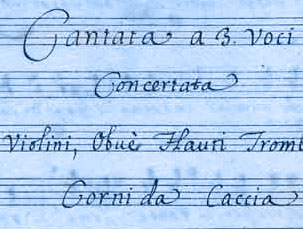 Cantata a 3. Voci
Concertata
Violini, Obuè Flauti Tromb
Corni da Caccia